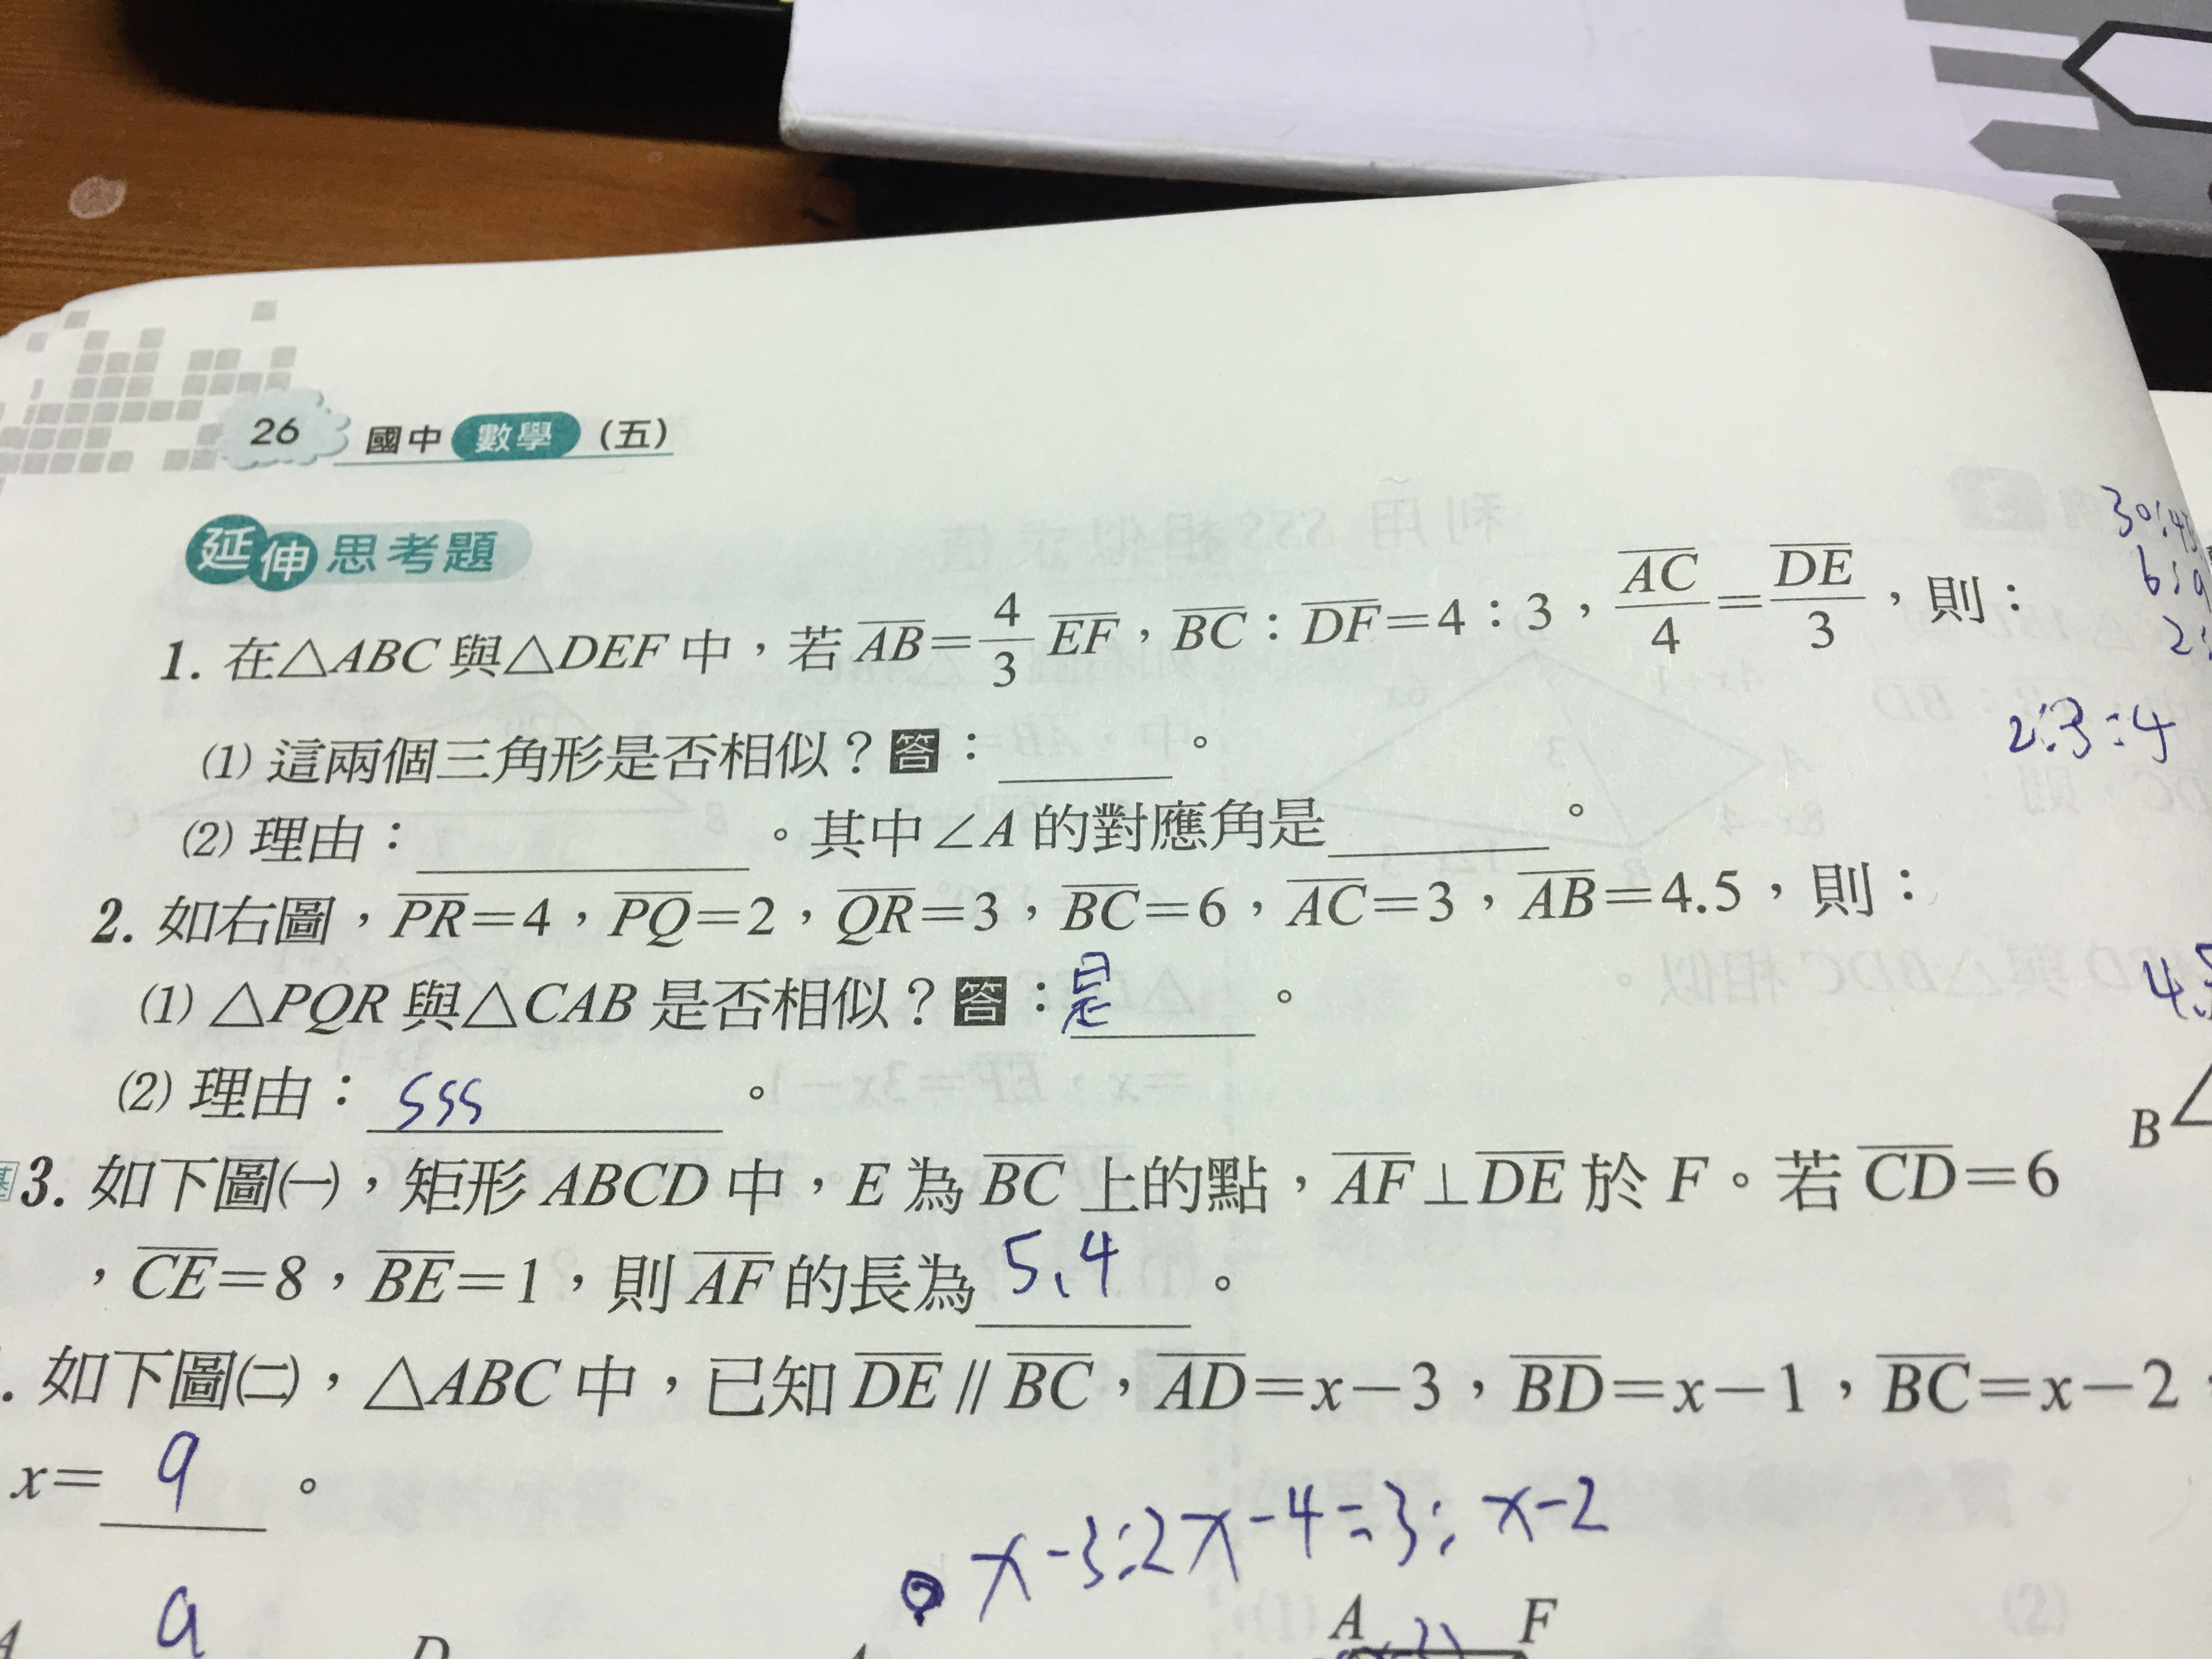 26 國中 數學 (五)
延伸思考題
1. 在△ABC與△DEF中，若AB=4/3 EF，BC：DF=4：3，AC/4=DE/3，則：
2:3:4
(1) 這兩個三角形是否相似？答：______。
(2) 理由：______。其中∠A的對應角是______。
2. 如右圖，PR=4，PQ=2，QR=3，BC=6，AC=3，AB=4.5，則：
(1) △PQR與△CAB是否相似？答：是。
(2) 理由：SSS。
B
3. 如下圖(一)，矩形ABCD中，E為BC上的點，AF⊥DE於F。若CD=6
，CE=8，BE=1，則AF的長為5.4。
. 如下圖(二)，△ABC中，已知DE∥BC，AD=x−3，BD=x−1，BC=x−2
x=9。
x-3:2x-4=3:x-2
9
A F